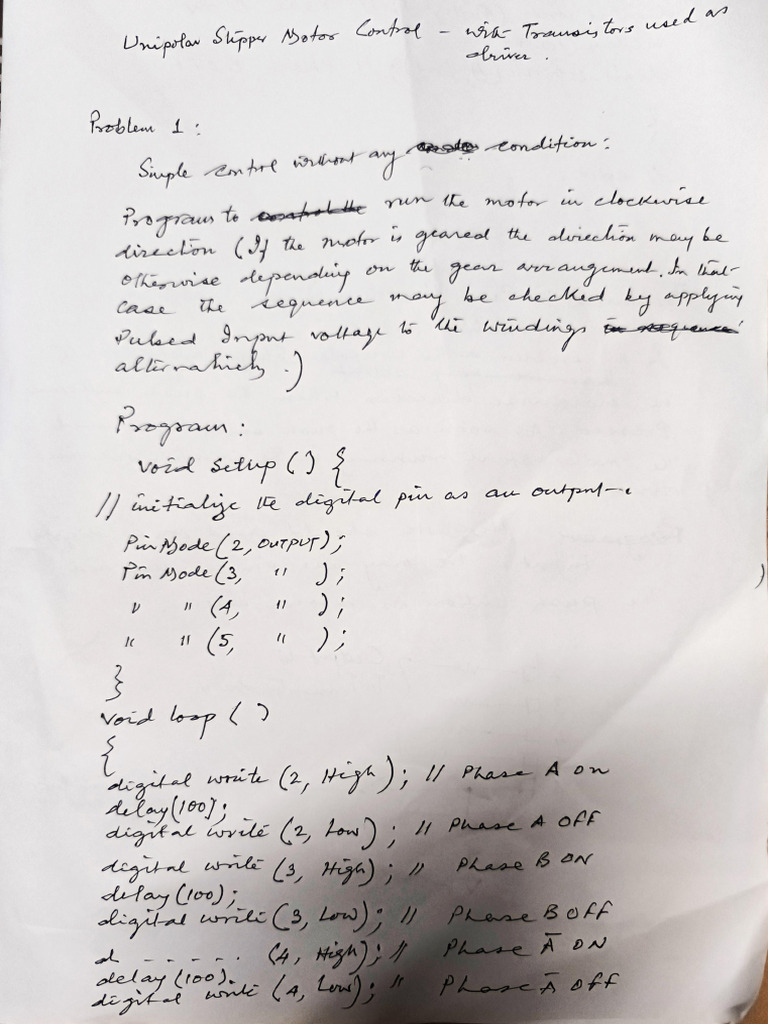 Unipolar Stepper Motor Control – with Transistors used as
driver.
Problem 1 :
Simple control without any condition :
Program to control the run the motor in clockwise
direction (If the motor is geared the direction may be
otherwise depending on the gear arrangement. In that
case the sequence may be checked by applying
Pulsed Input voltage to the windings in sequence
alternatively.)
Program :
void setup () {
// initialize the digital pin as an output.
PinMode (2, OUTPUT);
Pin Mode (3, " );
" " (4, " );
" " (5, " );
}
void loop ( )
{
digital write (2, High); // Phase A on
delay (100);
digital write (2, Low); // Phase A OFF
digital write (3, High); // Phase B ON
delay (100);
digital write (3, Low); // Phase B OFF
d - - - - - . (4, High); // Phase Ā ON
delay (100).
digital write (4, Low); " Phase Ā OFF